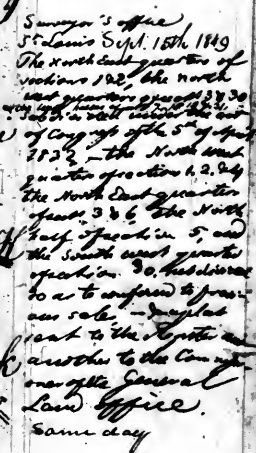 Surveyor's office
St Louis Sept. 15th 1849
The north East quarters of
sections 1 & 2, the north
west quarters of 3 & 30
Sub divided under the act
of Congress of the 5th of April
1832, - the North west
quarter of sections 1, 2, & 4
the North East quarter
of secs. 3 & 6 the North
half of section 5, and
the South west quarter
of section 30, subdivided
so as to conform to previ-
ous sales - duplicate
sent to the Register and
another to the Commissi-
oner of the General
Land office.
Same day